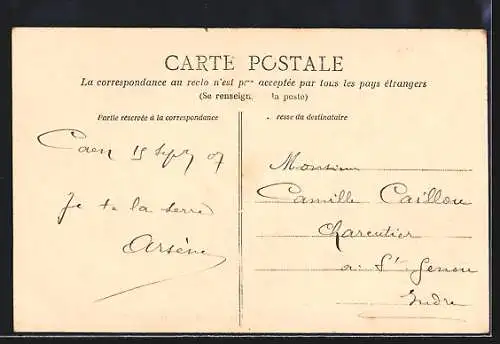 CARTE POSTALE
La correspondance au recto n'est p** acceptée par tous les pays étrangers
(Se renseign. la poste)
Partie réservée à la correspondance
resse du destinataire
Caen 15 Sept 07
Je te la serre
Arsène
Monsieur
Camille Caillou
Charcutier
a St Genou
Indre